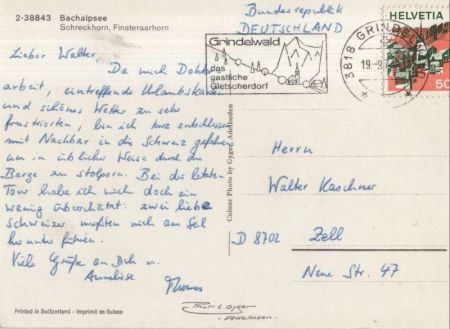 2-38843 Bachalpsee
Schreckhorn, Finsteraarhorn
Lieber Walter
Da mich Doktor
arbeit, eintreffende Urlaubskarten
und schönes Wetter zu sehr
frustrierten, bin ich kurz entschlossen
mit Nachbar in die Schweiz gefahren
um in üblicher Weise durch die
Berge zu stolpern. Bei der letzten
Tour habe ich mich doch ein
wenig überschätzt: zwei liebe
Schweizer mußten mich am Seil
herunter führen.
Viele Grüße an Dich u.
Anneliese
Thomas
Printed in Switzerland - Imprimé en Suisse
Colour Photo by Gyger, Adelboden
Bundesrepublik
DEUTSCHLAND
Grindelwald
das
gastliche
Gletscherdorf
3818 GRINDELWALD
HELVETIA
50
Herrn
Walter Kaschner
D 8702 Zell
Neue Str. 47
Adelboden